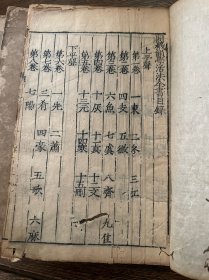 法全書目錄
上平聲
第一卷 一東 二冬 三江
第二卷 四支 五微
第三卷 六魚 七虞 八齊 九佳
第四卷 十灰 十一真 十二文
第五卷 十三元 十四寒 十五刪
下平聲
第六卷 一先 二蕭
第七卷 三肴 四豪 五歌 六麻
第八卷 七陽